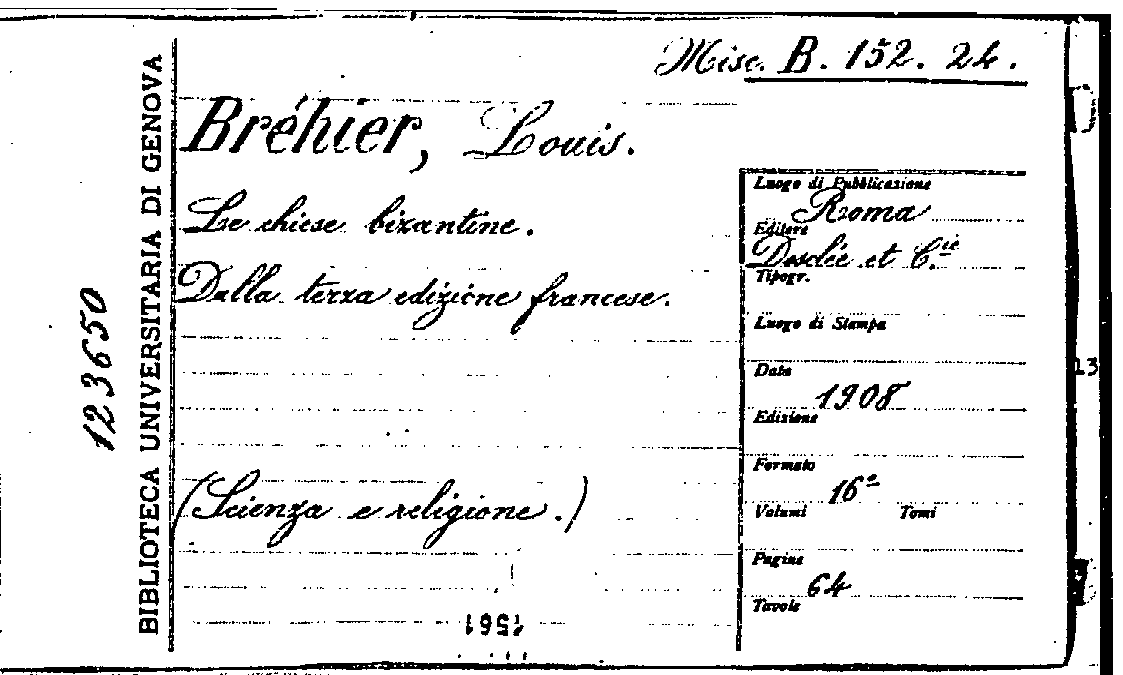 Misc. B. 152. 24.
Bréhier, Louis.
Le chiese bizantine.
Dalla terza edizione francese.
(Scienza e religione.)
1561
BIBLIOTECA UNIVERSITARIA DI GENOVA
123650
Luogo di Pubblicazione
Roma
Editore
Desclée et C.ie
Tipogr.
Luogo di Stampa
Data
1908
Edizione
Formato
16º
Volumi Tomi
Pagine
64
Tavole
13